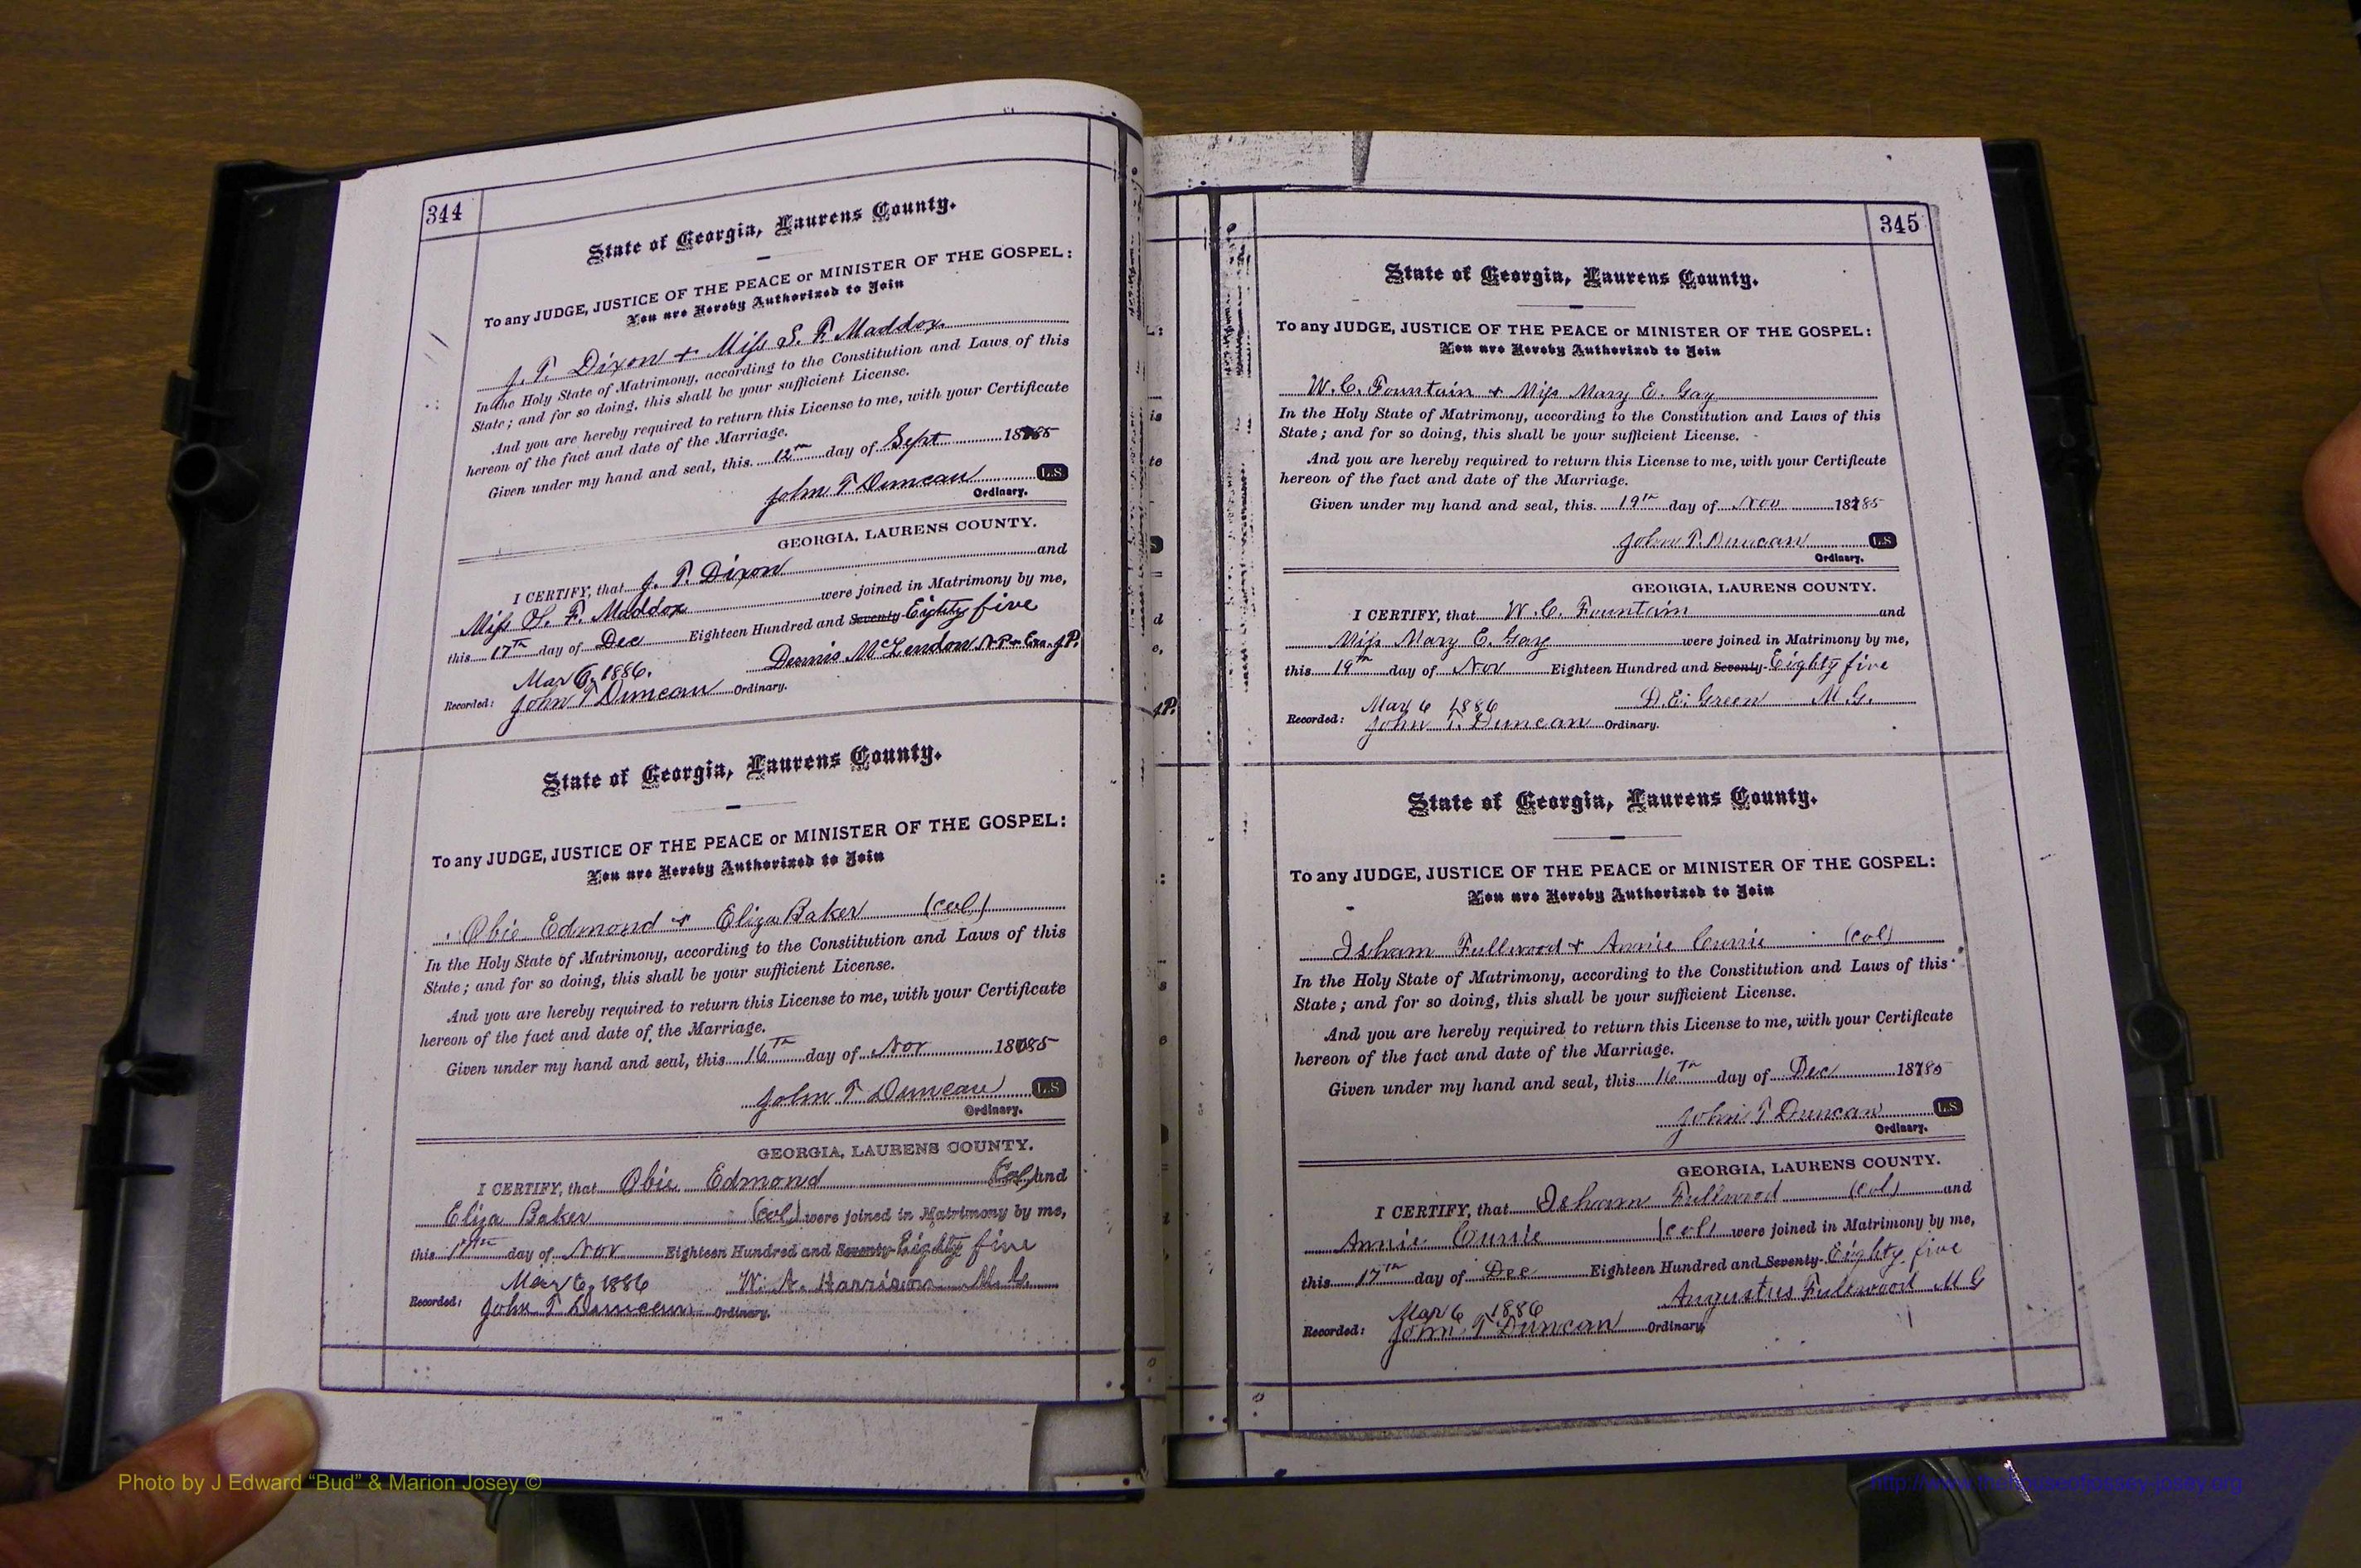 344
State of Georgia, Laurens County.
To any JUDGE, JUSTICE OF THE PEACE or MINISTER OF THE GOSPEL:
You are Hereby Authorized to Join
J. T. Dixon + Miss S. F. Maddox
In the Holy State of Matrimony, according to the Constitution and Laws of this
State; and for so doing, this shall be your sufficient License.
And you are hereby required to return this License to me, with your Certificate
hereon of the fact and date of the Marriage.
Given under my hand and seal, this 12th day of Sept 1885
John T Duncan L.S
Ordinary.
GEORGIA, LAURENS COUNTY.
I CERTIFY, that J. T. Dixon and
Miss S. F. Maddox were joined in Matrimony by me,
this 17th day of Dec Eighteen Hundred and Seventy- Eighty five
Dennis McLendon N.P. J.P.
Mar 6, 1886.
Recorded: John T Duncan Ordinary.
State of Georgia, Laurens County.
To any JUDGE, JUSTICE OF THE PEACE or MINISTER OF THE GOSPEL:
You are Hereby Authorized to Join
Obie Edmond + Eliza Baker (col)
In the Holy State of Matrimony, according to the Constitution and Laws of this
State; and for so doing, this shall be your sufficient License.
And you are hereby required to return this License to me, with your Certificate
hereon of the fact and date of the Marriage.
Given under my hand and seal, this 16th day of Nov 1885
John T Duncan L.S
Ordinary.
GEORGIA, LAURENS COUNTY.
I CERTIFY, that Obie Edmond (Col) and
Eliza Baker (col) were joined in Matrimony by me,
this 17th day of Nov Eighteen Hundred and Seventy- Eighty five
Mar 6, 1886 W. A. Harrison M. G.
Recorded: John T Duncan Ordinary.
345
State of Georgia, Laurens County.
To any JUDGE, JUSTICE OF THE PEACE or MINISTER OF THE GOSPEL:
You are Hereby Authorized to Join
W. C. Fountain + Miss Mary E. Gay
In the Holy State of Matrimony, according to the Constitution and Laws of this
State; and for so doing, this shall be your sufficient License.
And you are hereby required to return this License to me, with your Certificate
hereon of the fact and date of the Marriage.
Given under my hand and seal, this 19th day of Nov 1885
John T. Duncan L.S
Ordinary.
GEORGIA, LAURENS COUNTY.
I CERTIFY, that W. C. Fountain and
Miss Mary E. Gay were joined in Matrimony by me,
this 19th day of Nov Eighteen Hundred and Seventy- Eighty five
D. E. Green M. G.
Mar 6 1886
Recorded: John T. Duncan Ordinary.
State of Georgia, Laurens County.
To any JUDGE, JUSTICE OF THE PEACE or MINISTER OF THE GOSPEL:
You are Hereby Authorized to Join
Isham Fullwood + Annie Currie (Col)
In the Holy State of Matrimony, according to the Constitution and Laws of this
State; and for so doing, this shall be your sufficient License.
And you are hereby required to return this License to me, with your Certificate
hereon of the fact and date of the Marriage.
Given under my hand and seal, this 16th day of Dec 1885
John T Duncan L.S
Ordinary.
GEORGIA, LAURENS COUNTY.
I CERTIFY, that Isham Fullwood (Col) and
Annie Currie (col) were joined in Matrimony by me,
this 17th day of Dec Eighteen Hundred and Seventy- Eighty five
Augustus Fullwood M G
Mar 6 1886
Recorded: John T Duncan Ordinary,
Photo by J Edward “Bud” & Marion Josey ©